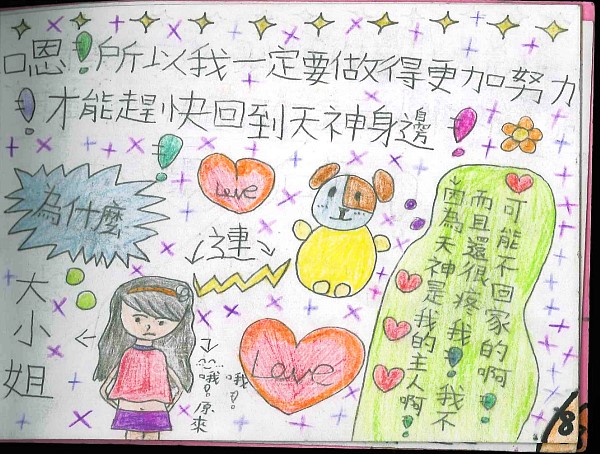 嗯！所以我一定要做得更加努力
！才能趕快回到天神身邊！
為什麼
Love
3連
大小姐
哦！
哦！原來
Love
因為天神是我的主人啊！
而且還很疼我！我不
可能不回家的啊！
8